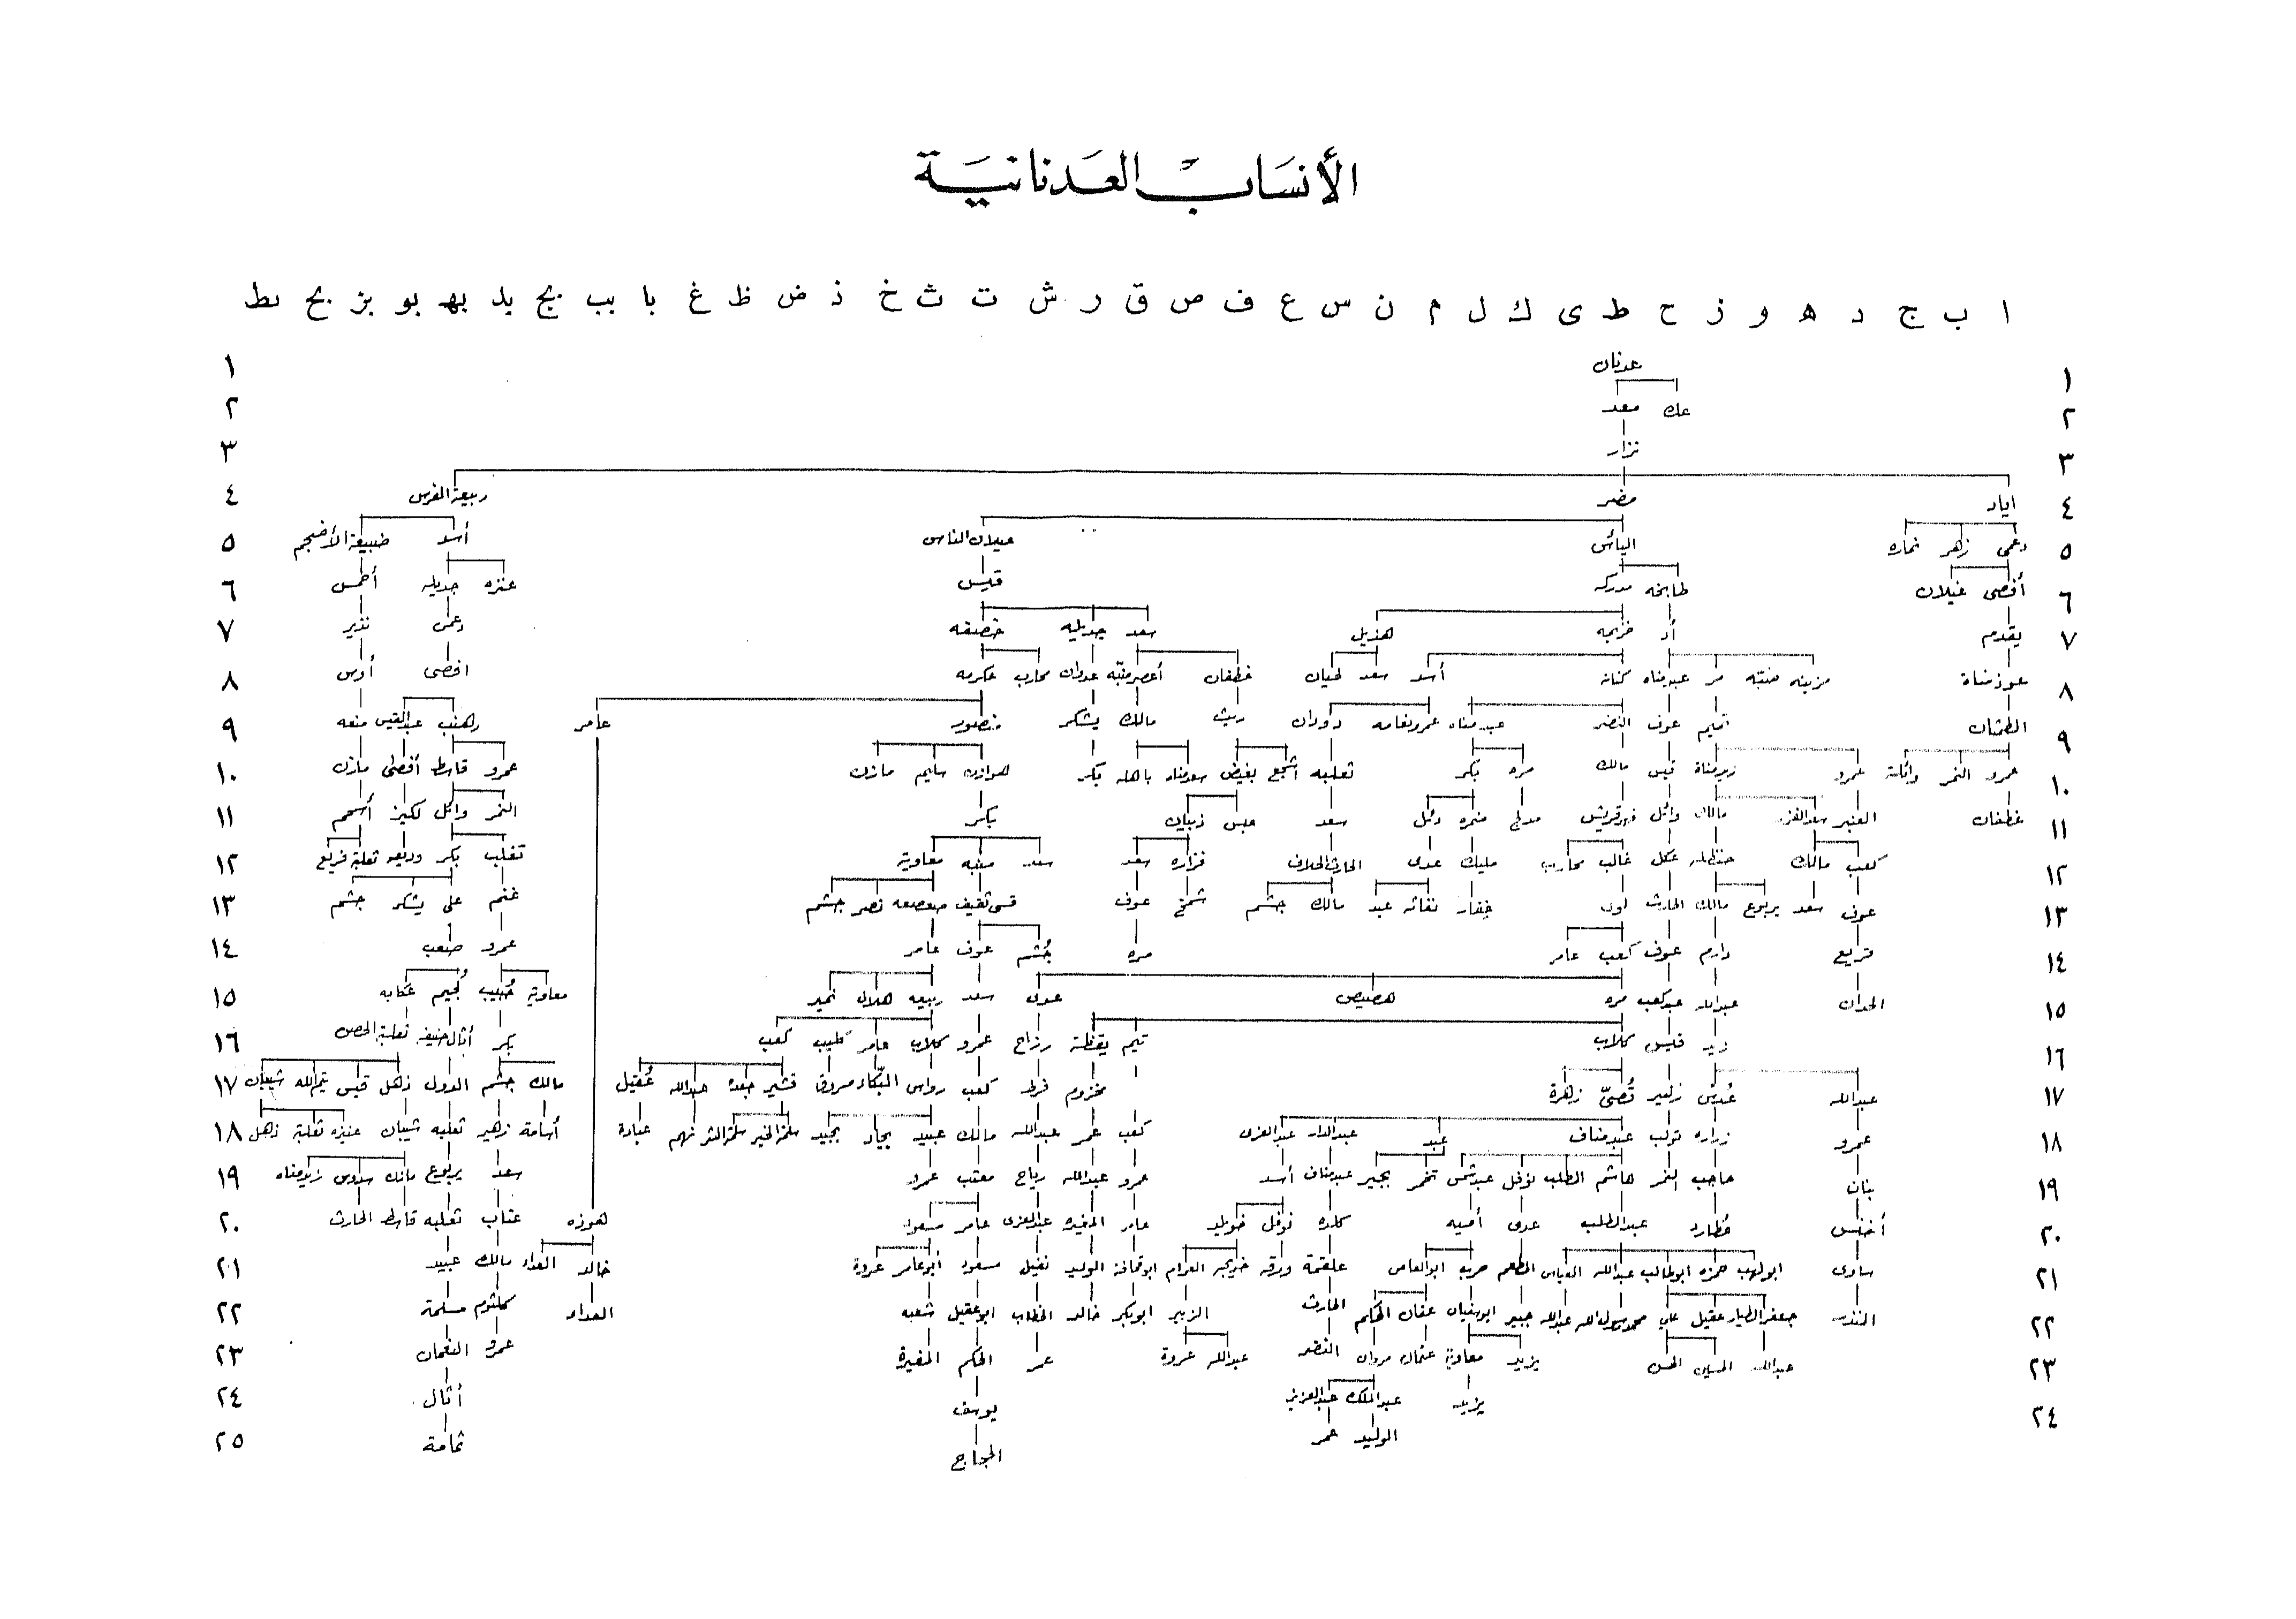 الأنسَاب العَدنانيَة
ا ب ج د ه و ز ح ط ى ك ل م ن س ع ف ص ق ر ش ت ث خ ذ ض ظ غ با بب بج بد به بو بز بح بط
١ عدنان ١
٢ عك معد ٢
٣ نزار ٣
٤ اياد مضر ربيعة الفرس ٤
٥ دعمى زهر نماره الياس عيلان الناس أسد ضبيعة الأضجم ٥
٦ أفصى غيلان طابخه مدركه قيس عنزه جديله أحمس ٦
٧ يقدم أد خزيمه هذيل سعد جديليه خصفه دعمى نذير ٧
٨ عوذ مناة مزينه ضبّه مر عبدمناه كنانه أسد سعد لحيان غطفان أعصرمنبّه عدوان محارب عكرمه افصى أوس ٨
٩ الطمثان تميم عوف النضر عبد مناه عمرونعامه دودان ريث مالك يشكر منصور عامر هنب عبدالقيس منعه ٩
١٠ عمرو النمر وائلة عمرو زيدمناة قيس مالك مره بكر ثعلبه أشجع بغيض سعدمناه باهله بكر هوازن سليم مازن عمرو قاسط أفصى مازن ١٠
١١ غطفان العنبر سعدالفزر مالك وائل فهرقريش مدلج ضمره دئل سعد عبس ذبيان بكر النمر وائل لكيز أسحم ١١
١٢ كعب مالك حنظله عكل غالب محارب مليك عدى الحارث الحلاف فزاره سعد سعد منبه معاوية تغلب بكر وديعه ثعلبة فريع ١٢
١٣ عوف سعد يربوع مالك الحارث لوى غفار نفاثه عبد مالك جشم شمخ عوف قسى ثقيف صعصعه نصر جشم غنم على يشكر جشم ١٣
١٤ قريع دارم عوف كعب عامر مره جُشم عوف عامر عمرو صعب ١٤
١٥ الحدان عبدالله عبدكعب مره هصيص عدى سعد ربيعه هلال نمير معاوية حُبيب لُجيم عكابه ١٥
١٦ زيد قيس كلاب تيم يقظة رزاح عمرو كلاب عامر كليب كعب بكر أثال حنيفه ثعلبة الحصن ١٦
١٧ عبدالله عُدس زهير قُصىّ زهرة مخزوم قرط كعب رواس البكّاء مروق قشير جعده عبدالله عُقيل مالك جشم الدول ذهل قيس تيم الله شيبان ١٧
١٨ عمرو زراره تولب عبدمناف عبد عبدالدار عبدالعزى كعب عمر عبدالله مالك عبيد بجاد بجيد سلمة الخير سلمة الشر نهم عبادة أسامة زهير ثعلبه شيبان عنيزه ثعلبة ذهل ١٨
١٩ بنان حاجب النمر هاشم المطلب نوفل عبدشمس تخمر بجير عبدمناف أسد عمرو عبدالله رياح معتب عمرو سعد يربوع مازن سدوس زيدمناه ١٩
٢٠ أخنس عُطارد عبدالمطلب عدى أميه كلده نوفل خويلد عامر المغيره عبدالعزى عامر مسعود هوذه عتاب ثعلبه قاسط الحارث ٢٠
٢١ ساوى ابولهب حمزه ابوطالب عبدالله العباس المطعم حرب ابوالعاص علقمة ورقه خديجه العوام ابوقحافة الوليد نفيل مسعود أبوعامر عروة خالد العداء مالك عبيد ٢١
٢٢ المنذر جعفر الطيار عقيل علي محمد رسول الله عبدالله جبير ابوسفيان عفان الحكم الحارث الزبير ابوبكر خالد الخطاب ابوعقيل شعبه العداء كلثوم مسلمة ٢٢
٢٣ عبدالله الحسين الحسن يزيد معاوية عثمان مروان النضر عبدالله عروة عمر الحكم المغيرة عمرو النعمان ٢٣
٢٤ يزيد عبدالملك عبدالعزيز يوسف أثال ٢٤
الوليد عمر الحجاج ثمامة ٢٥